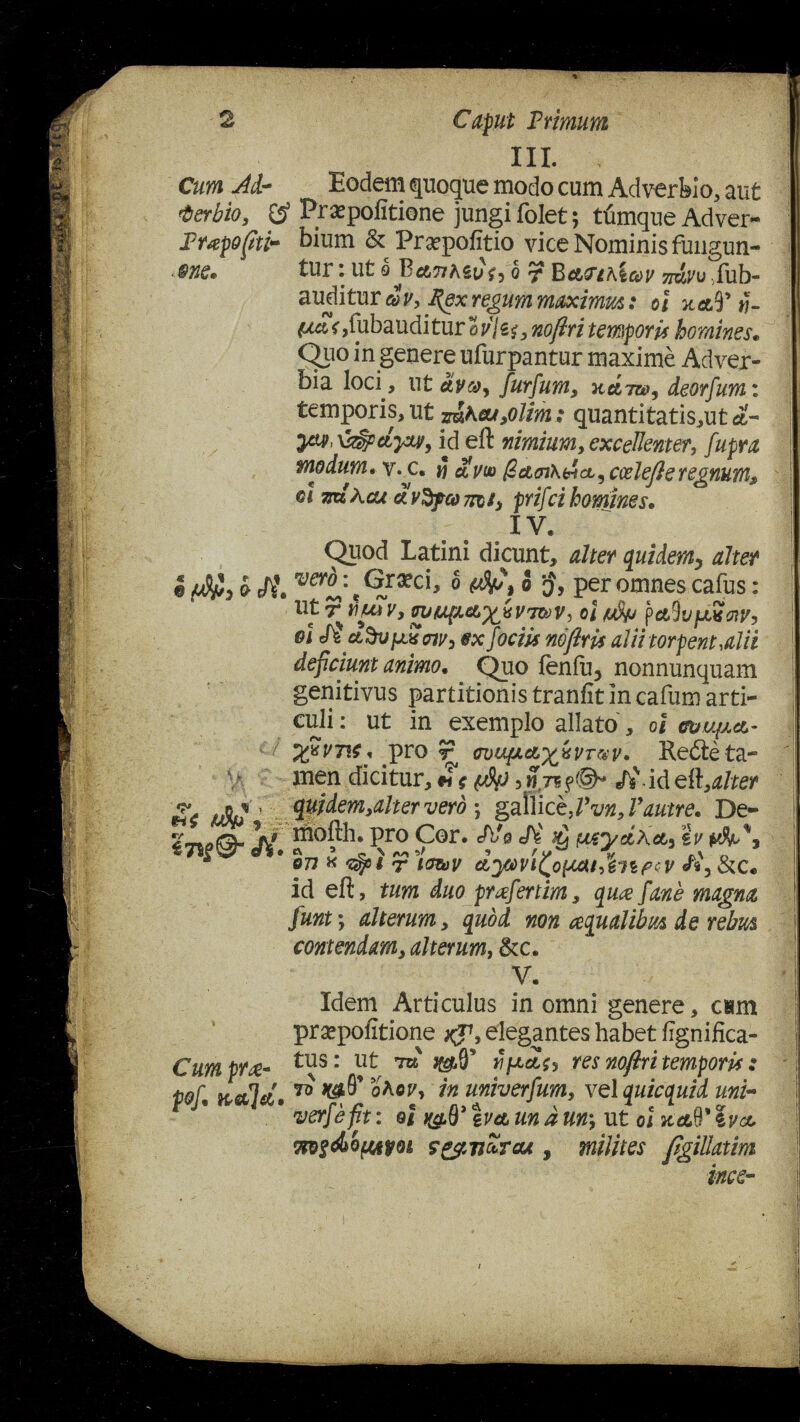 2 Caput Primum
III.
Cum Ad- Eodem quoque modo cum Adverbio, aut
verbio, & Præpoſitione jungi ſolet; túmque Adver-
Præpoſiti- bium & Præpoſitio vice Nominis fungun-
one. tur: ut ὁ Βασιλεὺς, ὁ τ͂ Βασιλέων πάνυ, ſub-
auditur ὢν, Rex regum maximus: οἱ καθ' ἡ-
μᾶς, ſubauditur ὄντες, noſtri temporis homines.
Quo in genere uſurpantur maximè Adver-
bia loci, ut ἄνω, ſurſum, κάτω, deorſum:
temporis, ut πάλαι, olim: quantitatis, ut ἄ-
γαν, ὑπεράγαν, id eſt nimium, excellenter, ſupra
modum. v. c. ἡ ἄνω βασιλεία, cœleſte regnum,
οἱ πάλαι ἄνθρωποι, priſci homines.
IV.
Quod Latini dicunt, alter quidem, alter
ὁ μὲν, ὁ δὲ. verò: Græci, ὁ μὲν, ὁ δὲ, per omnes caſus:
ut τ͂ ἡμῶν, συμμαχούντων, οἱ μὲν ῥαθυμοῦσιν,
οἱ δὲ ἀθυμοῦσιν, ex ſociis noſtris alii torpent, alii
deficiunt animo. Quo ſenſu, nonnunquam
genitivus partitionis tranſit in caſum arti-
culi: ut in exemplo allato, οἱ συμμα-
χοῦντες, pro τ͂ συμμαχούντων. Rectè ta-
men dicitur, εἷς μὲν, ἕτερος δὲ. id eſt, alter
εἷς μὲν, quidem, alter verò; gallicè, l'vn, l'autre. De-
ἕτερος δὲ. moſth. pro Cor. δύο δὲ καὶ μεγάλα, ἓν μὲν,
ὅτι οὐ περὶ τ͂ ἴσων ἀγωνίζομαι, ἕτερον δὲ, &c.
id eſt, tum duo præſertim, quæ ſanè magna
ſunt; alterum, quòd non æqualibus de rebus
contendam, alterum, &c.
V.
Idem Articulus in omni genere, cum
præpoſitione κατὰ, elegantes habet ſignifica-
Cum præ- tus: ut τὰ καθ' ἡμᾶς, res noſtri temporis:
poſ. κατά. τὸ καθ' ὅλον, in univerſum, vel quicquid uni-
verſè fit: οἱ καθ' ἕνα un à un; ut οἱ καθ' ἕνα
προσδεόμενοι στρατιῶται, milites ſigillatim
ince-